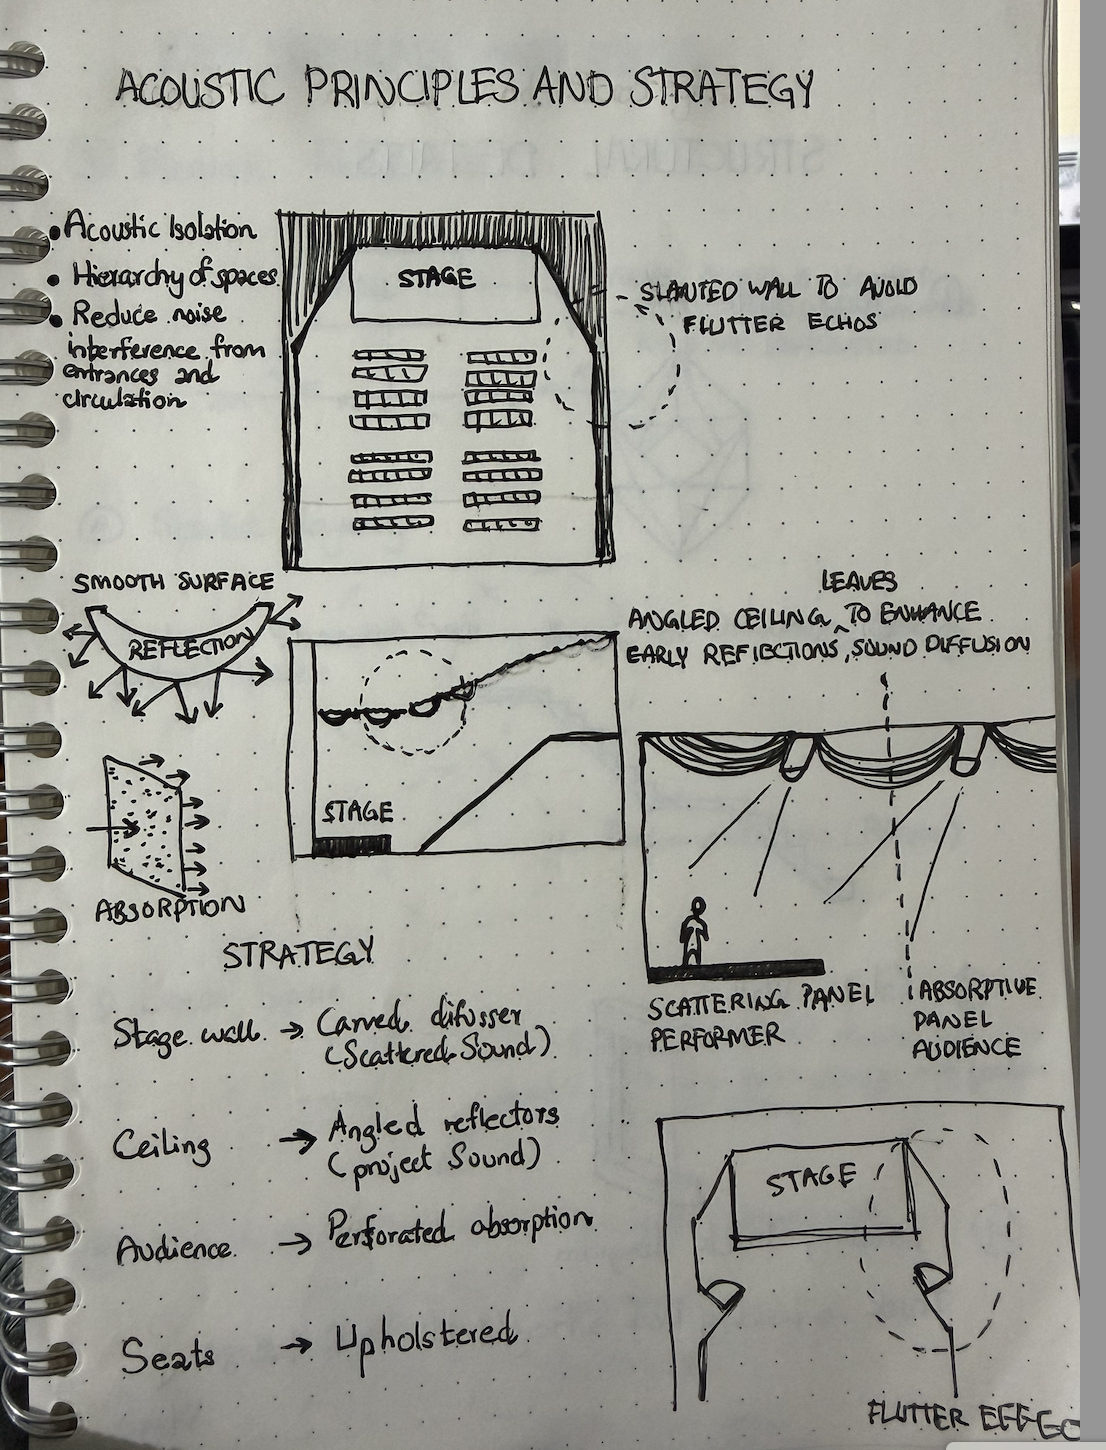 ACOUSTIC PRINCIPLES AND STRATEGY
• Acoustic Isolation
• Hierarchy of spaces
• Reduce noise
interference from
entrances and
circulation
STAGE
SLANTED WALL TO AVOID
FLUTTER ECHOS
SMOOTH SURFACE
REFLECTION
LEAVES
ANGLED CEILING ^ TO ENHANCE
EARLY REFLECTIONS, SOUND DIFFUSION
STAGE
ABSORPTION
SCATTERING PANEL
PERFORMER
ABSORPTIVE
PANEL
AUDIENCE
STRATEGY
Stage wall → Carved difusser
(Scattered Sound)
Ceiling → Angled reflectors
(project Sound)
Audience → Perforated absorption
Seats → Upholstered
STAGE
FLUTTER